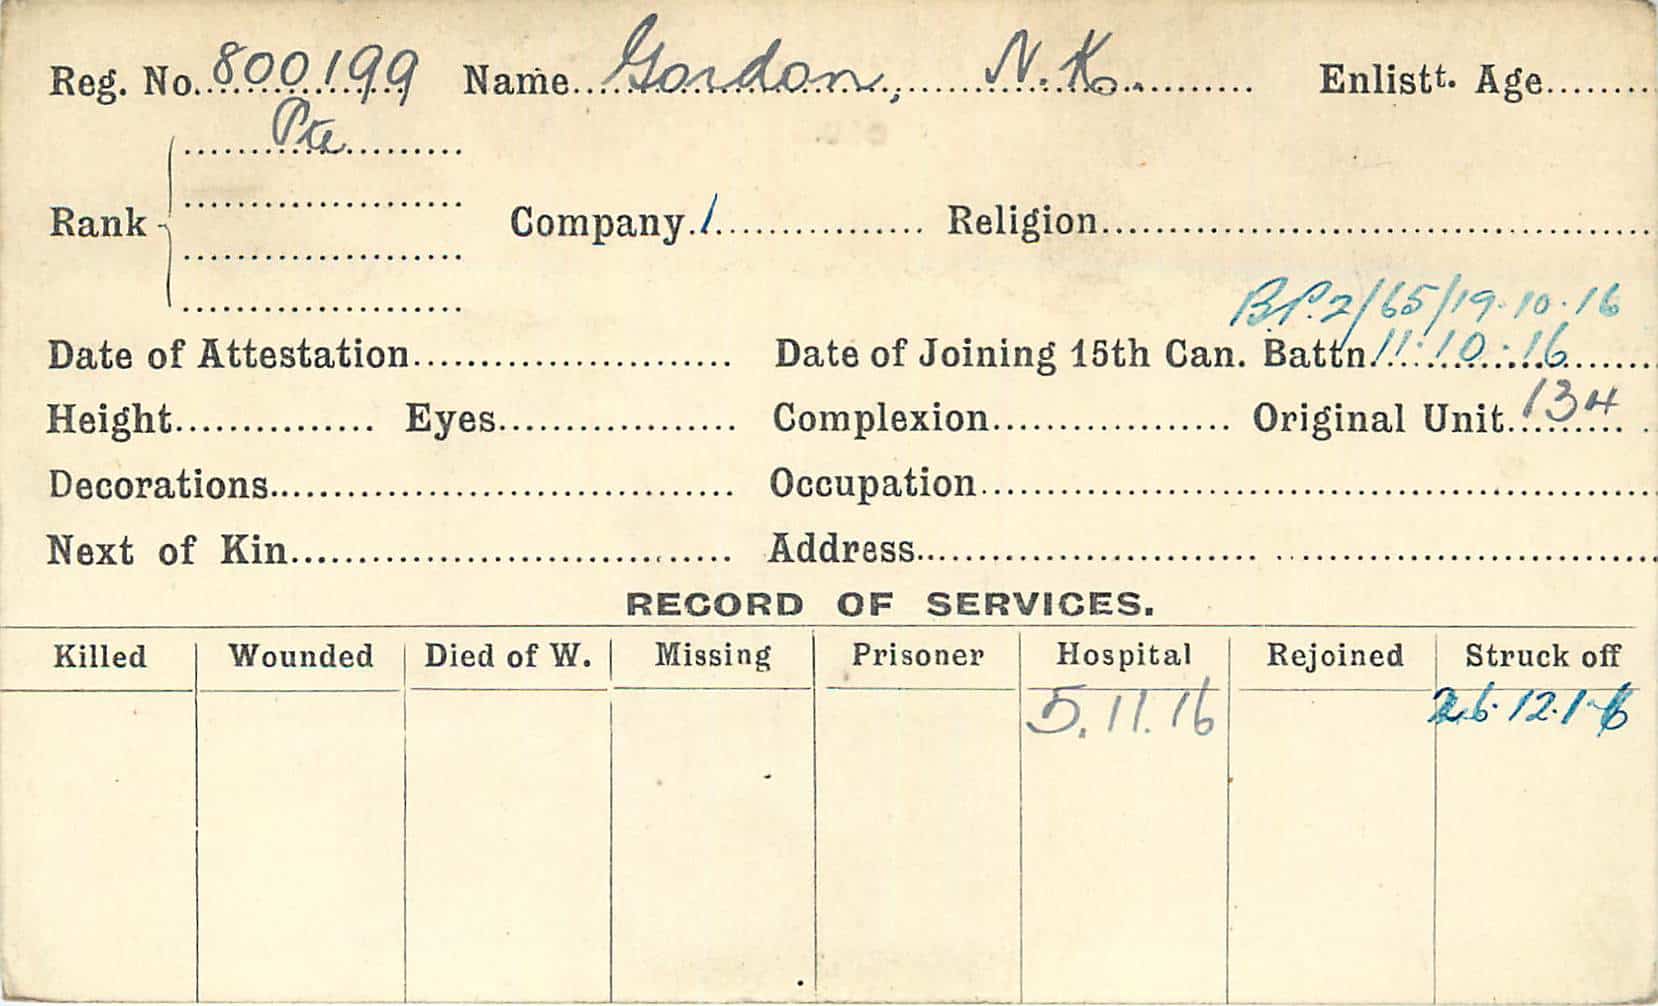 Reg. No. 800199 Name Gordon, N. K. Enlistt. Age
Pte
Rank Company 1 Religion
B.P.2/65/19.10.16
Date of Attestation Date of Joining 15th Can. Battn. 11.10.16
Height Eyes Complexion Original Unit 134
Decorations Occupation
Next of Kin Address
RECORD OF SERVICES.
Killed Wounded Died of W. Missing Prisoner Hospital Rejoined Struck off
5.11.16 26.12.16